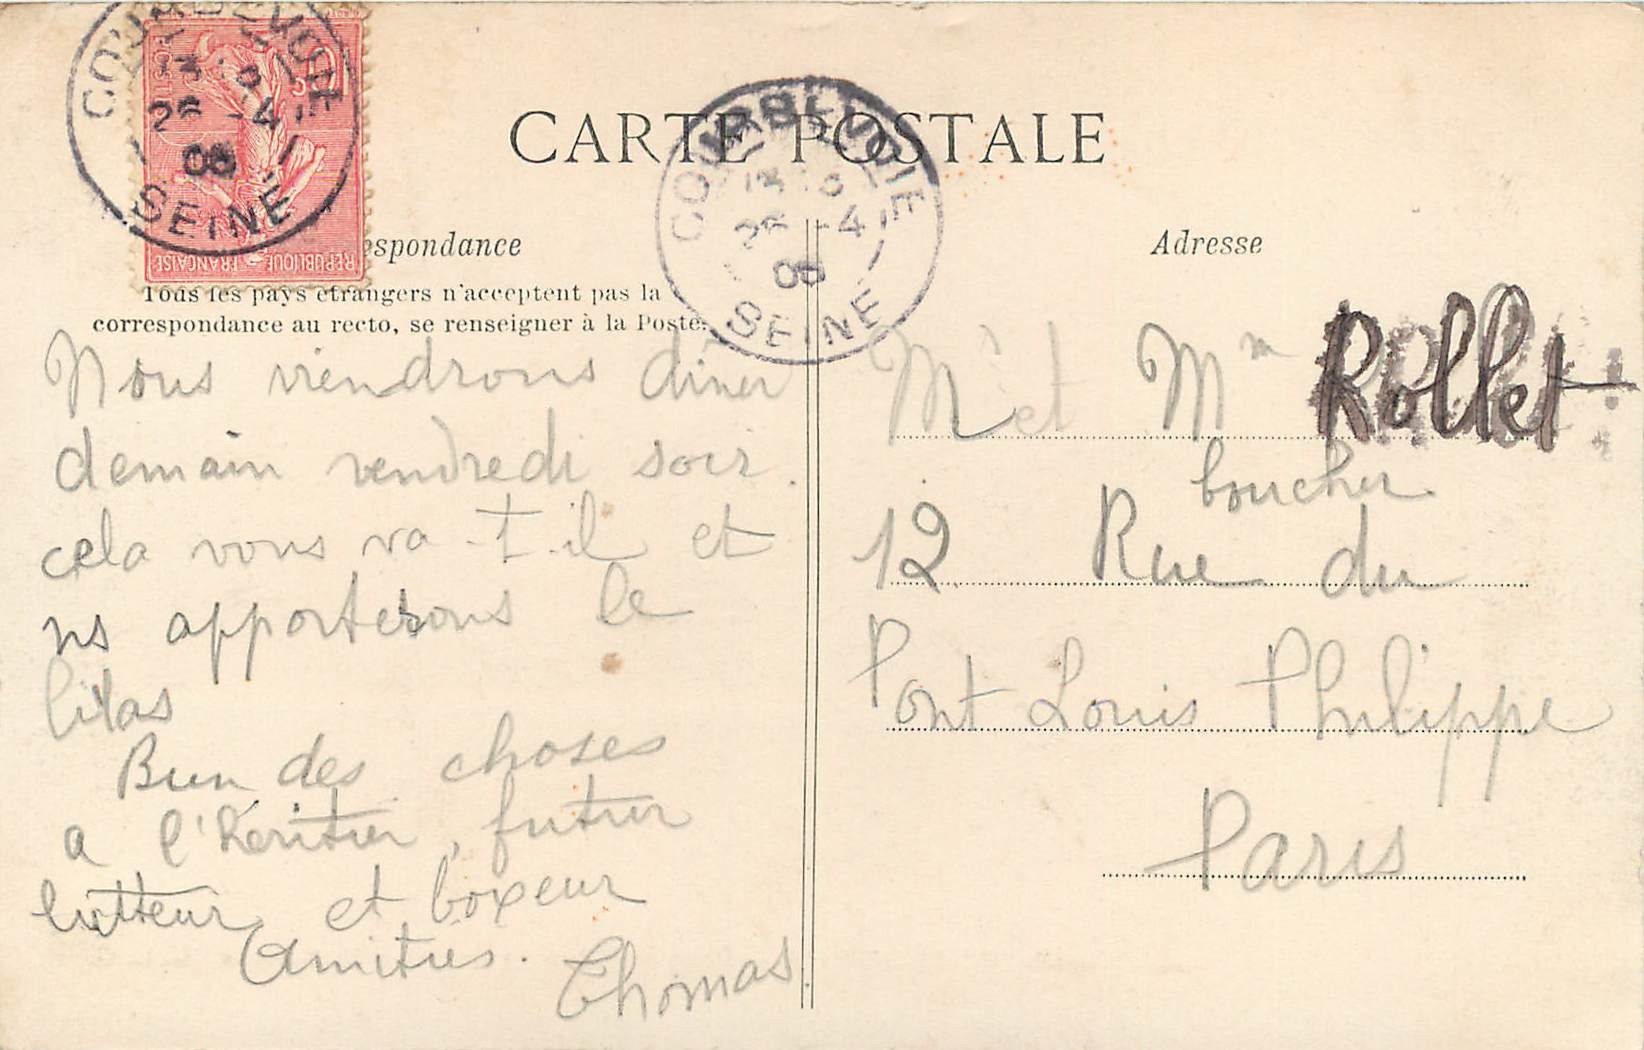 CARTE POSTALE
COURBEVOIE
26 -4
06
SEINE
10 c
POSTES
REPUBLIQUE FRANÇAISE
COURBEVOIE
26 -4
06
SEINE
espondance
Tous les pays étrangers n'acceptent pas la
correspondance au recto, se renseigner à la Poste.
Nous viendrons diner
demain vendredi soir.
cela vous va-t-il et
ns apporterons le
lilas
Bien des choses
a l'héritier, futur
lutteur et boxeur
Amitiés.
Thomas
Adresse
Mr et Mm Rollet
boucher
12 Rue du
Pont Louis Philippe
Paris